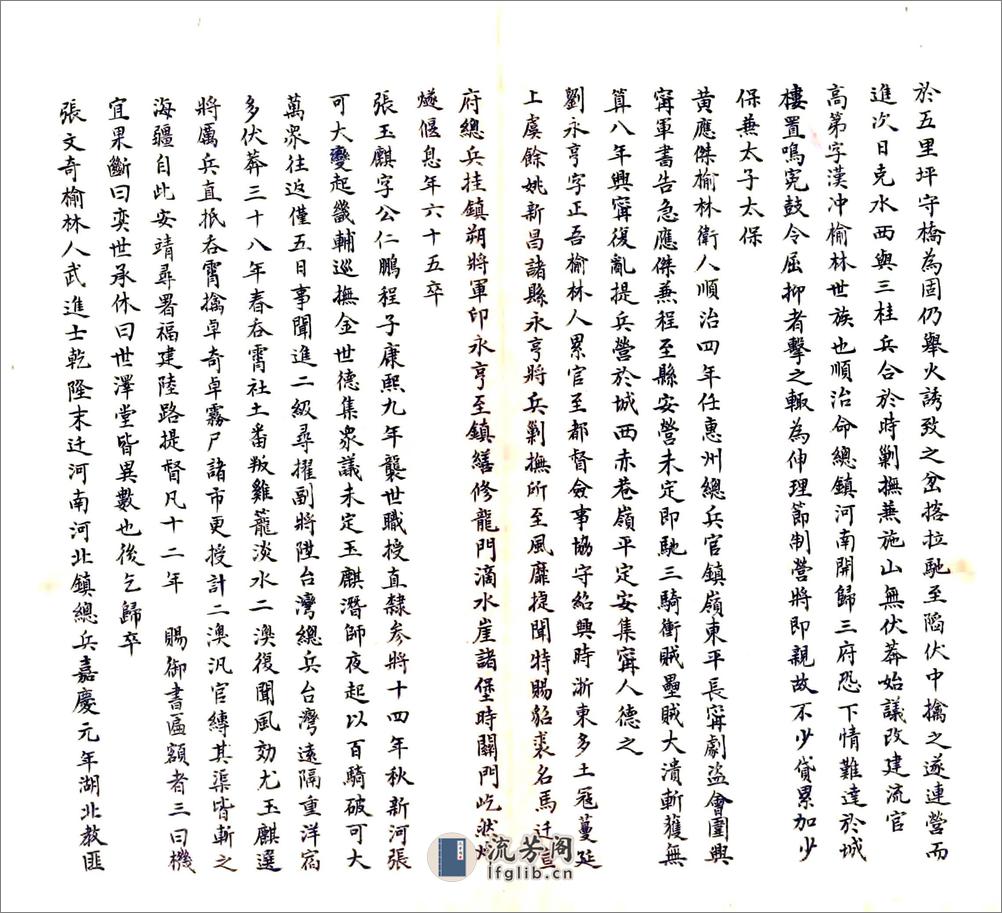 於五里坪守橋為固仍舉火誘致之岔喀拉馳至陷伏中擒之遂連營而
進次日克水西與三桂兵合於時剿撫兼施山無伏莽始議改建流官
高第字漢沖榆林世族也順治命總鎮河南開歸三府恐下情難達於城
樓置鳴冤鼓令屈抑者擊之輒為伸理節制營將即親故不少貸累加少
保兼太子太保
黃應傑榆林衛人順治四年任惠州總兵官鎮嶺東平長甯劇盜會圍興
甯軍書告急應傑兼程至縣安營未定即馳三騎衝賊壘賊大潰斬獲無
算八年興甯復亂提兵營於城西赤巷嶺平定安集甯人德之
劉永亨字正吾榆林人累官至都督僉事協守紹興時浙東多土寇蔓延
上虞餘姚新昌諸縣永亨將兵剿撫所至風靡捷聞特賜貂裘名馬迁宣
府總兵挂鎮朔將軍印永亨至鎮繕修龍門滴水崖諸堡時關門屹然烽
燧偃息年六十五卒
張玉麒字公仁鵬程子康熙九年襲世職授直隸参將十四年秋新河張
可大變起畿輔巡撫金世德集衆議未定玉麒潛師夜起以百騎破可大
萬衆往返僅五日事聞進二級尋擢副將陞台灣總兵台灣遠隔重洋宿
多伏莽三十八年春吞霄社土番叛雞籠淡水二澳復聞風効尤玉麒選
將厲兵直抵吞霄擒卓奇卓霧尸諸市更授計二澳汛官縛其渠皆斬之
海疆自此安靖尋署福建陸路提督凡十二年 賜御書匾額者三曰機
宜果斷曰奕世承休曰世澤堂皆異數也後乞歸卒
張文奇榆林人武進士乾隆末迁河南河北鎮總兵嘉慶元年湖北教匪
流芳阁
lfglib.cn